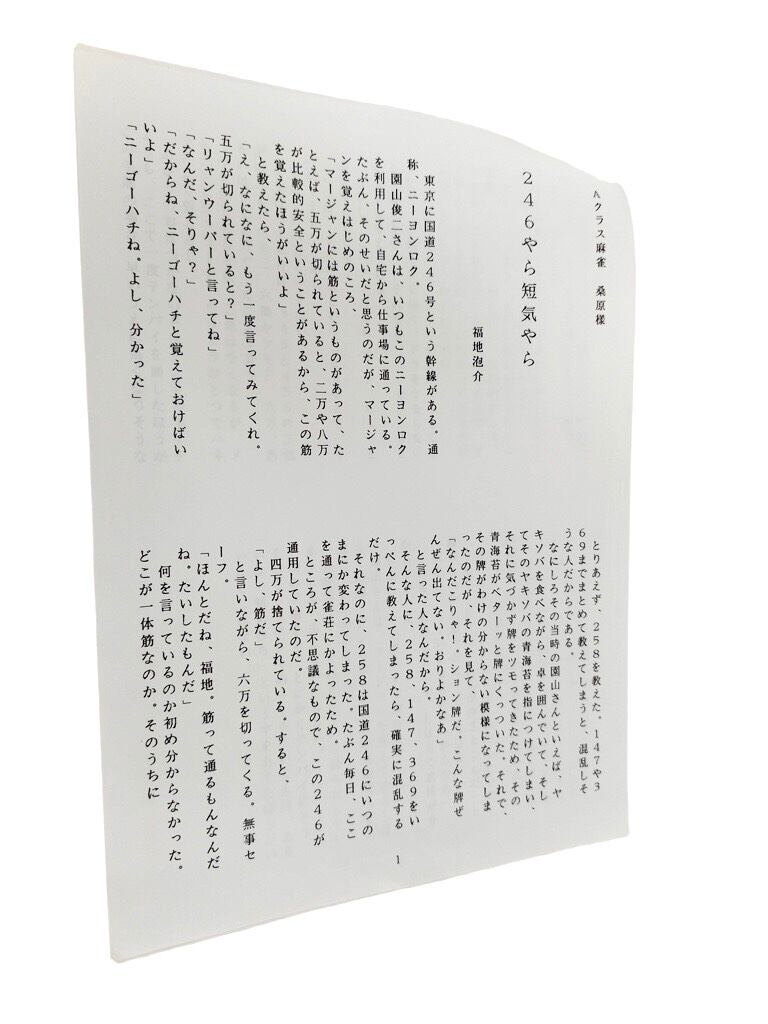 Aクラス麻雀　桑原様
246やら短気やら
福地泡介
東京に国道246号という幹線がある。通
称、ニーヨンロク。
園山俊二さんは、いつもこのニーヨンロク
を利用して、自宅から仕事場に通っている。
たぶん、そのせいだと思うのだが、マージャ
ンを覚えはじめのころ、
「マージャンには筋というものがあって、た
とえば、五万が切られていると、二万や八万
が比較的安全ということがあるから、この筋
を覚えたほうがいいよ」
と教えたら、
「え、なになに、もう一度言ってみてくれ。
五万が切られていると？」
「リャンウーパーと言ってね」
「なんだ、そりゃ？」
「だからね、ニーゴーハチと覚えておけばい
いよ」
「ニーゴーハチね。よし、分かった」
とりあえず、258を教えた。147や3
69までまとめて教えてしまうと、混乱しそ
うな人だからである。
なにしろその当時の園山さんといえば、ヤ
キソバを食べながら、卓を囲んでいて、そし
てそのヤキソバの青海苔を指につけてしまい、
それに気づかず牌をツモってきたため、その
青海苔がベターッと牌にくっついた。それで、
その牌がわけの分からない模様になってしま
ったのだが、それを見て、
「なんだこりゃ！。ション牌だ、こんな牌ぜ
んぜん出てない。おりよかなあ」
と言った人なんだから。
そんな人に、258、147、369をい
っぺんに教えてしまったら、確実に混乱する
だけ。
それなのに、258は国道246にいつの
まにか変わってしまった。たぶん毎日、ここ
を通って雀荘にかよったため。
ところが、不思議なもので、この246が
通用していたのだ。
四万が捨てられている。すると、
「よし、筋だ」
と言いながら、六万を切ってくる。無事セ
ーフ。
「ほんとだね、福地。筋って通るもんなんだ
ね。たいしたもんだ」
何を言っているのか初め分からなかった。
どこが一体筋なのか。そのうちに
1